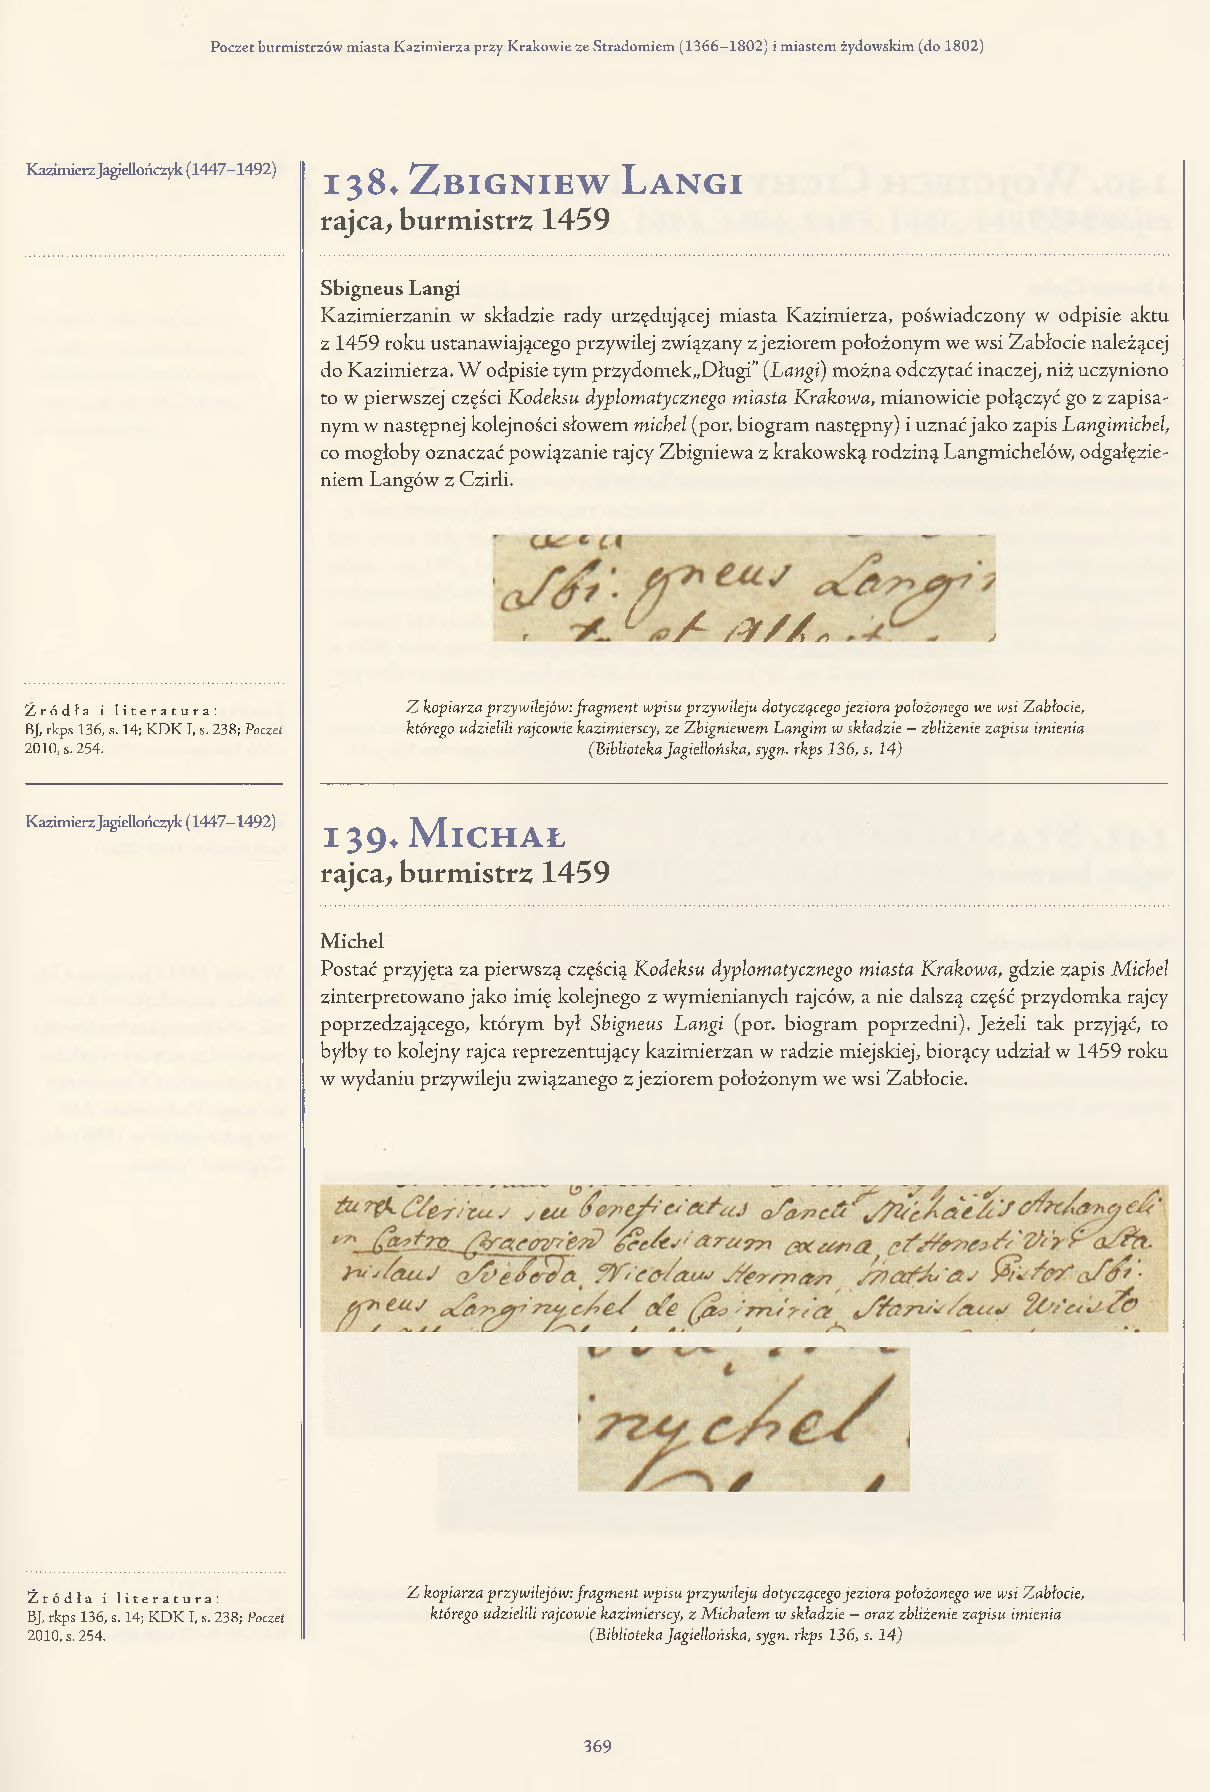 Poczet burmistrzów miasta Kazimierza przy Krakowie ze Stradomiem (1366–1802) i miastem żydowskim (do 1802)
Kazimierz Jagiellończyk (1447–1492)
138. Zbigniew Langi
rajca, burmistrz 1459
Sbigneus Langi
Kazimierzanin w składzie rady urzędującej miasta Kazimierza, poświadczony w odpisie aktu
z 1459 roku ustanawiającego przywilej związany z jeziorem położonym we wsi Zabłocie należącej
do Kazimierza. W odpisie tym przydomek „Długi" (Langi) można odczytać inaczej, niż uczyniono
to w pierwszej części Kodeksu dyplomatycznego miasta Krakowa, mianowicie połączyć go z zapisa-
nym w następnej kolejności słowem michel (por. biogram następny) i uznać jako zapis Langimichel,
co mogłoby oznaczać powiązanie rajcy Zbigniewa z krakowską rodziną Langmichelów, odgałęzie-
niem Langów z Czirli.
Sbi. gneus Langi
et Albert
Źródła i literatura:
BJ, rkps 136, s. 14; KDK I, s. 238; Poczet
2010, s. 254.
Z kopiarza przywilejów: fragment wpisu przywileju dotyczącego jeziora położonego we wsi Zabłocie,
którego udzielili rajcowie kazimierscy, ze Zbigniewem Langim w składzie – zbliżenie zapisu imienia
(Biblioteka Jagiellońska, sygn. rkps 136, s. 14)
Kazimierz Jagiellończyk (1447–1492)
139. Michał
rajca, burmistrz 1459
Michel
Postać przyjęta za pierwszą częścią Kodeksu dyplomatycznego miasta Krakowa, gdzie zapis Michel
zinterpretowano jako imię kolejnego z wymienianych rajców, a nie dalszą część przydomka rajcy
poprzedzającego, którym był Sbigneus Langi (por. biogram poprzedni). Jeżeli tak przyjąć, to
byłby to kolejny rajca reprezentujący kazimierzan w radzie miejskiej, biorący udział w 1459 roku
w wydaniu przywileju związanego z jeziorem położonym we wsi Zabłocie.
Clericus seu beneficiatus Sancti Michaelis Archangeli
in Castro Cracovien Ecclesiarum ex una, et Honesti Viri Sta.
nislaus Sveboda, Nicolaus Herman, Mathias Pistor Sbi.
gneus Langinychel de Casimiria, Stanislaus Wicisto
nychel
Źródła i literatura:
BJ, rkps 136, s. 14; KDK I, s. 238; Poczet
2010, s. 254.
Z kopiarza przywilejów: fragment wpisu przywileju dotyczącego jeziora położonego we wsi Zabłocie,
którego udzielili rajcowie kazimierscy, z Michałem w składzie – oraz zbliżenie zapisu imienia
(Biblioteka Jagiellońska, sygn. rkps 136, s. 14)
369